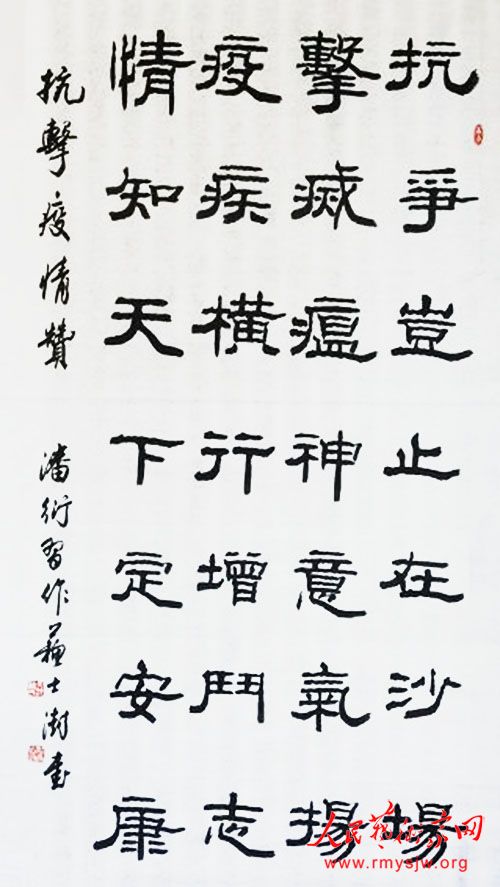 抗爭豈止在沙場
擊滅瘟神意氣揚
疫疾橫行增鬥志
情知天下定安康
抗擊疫情贊
潘衍習作蘇士澍書
人民藝術家网
www.rmysjw.org